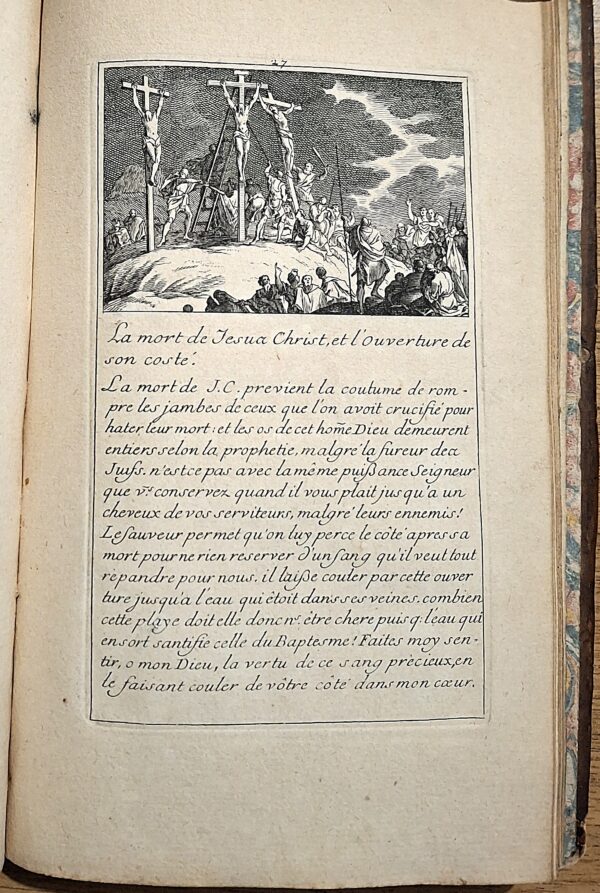 27
La mort de Jesus Christ, et l'ouverture de
son costé.
La mort de J.C. previent la coutume de rom-
pre les jambes de ceux que l'on avoit crucifié pour
hater leur mort: et les os de cet hom̃e Dieu demeurent
entiers selon la prophetie, malgré la fureur des
Juifs. n'estce pas avec la même puißance Seigneur
que v.s conservez quand il vous plait jusqu'a un
cheveux de vos serviteurs, malgré leurs ennemis!
Le sauveur permet qu'on luy perce le côté apres sa
mort pour ne rien reserver d'un sang qu'il veut tout
repandre pour nous, il laiße couler par cette ouver
ture jusqu'a l'eau qui êtoit dans ses veines. combien
cette playe doit elle donc n.s être chere puis q; l'eau qui
en sort santifie celle du Baptesme! Faites moy sen-
tir, o mon Dieu, la vertu de ce sang précieux, en
le faisant couler de vôtre côté dans mon cœur.